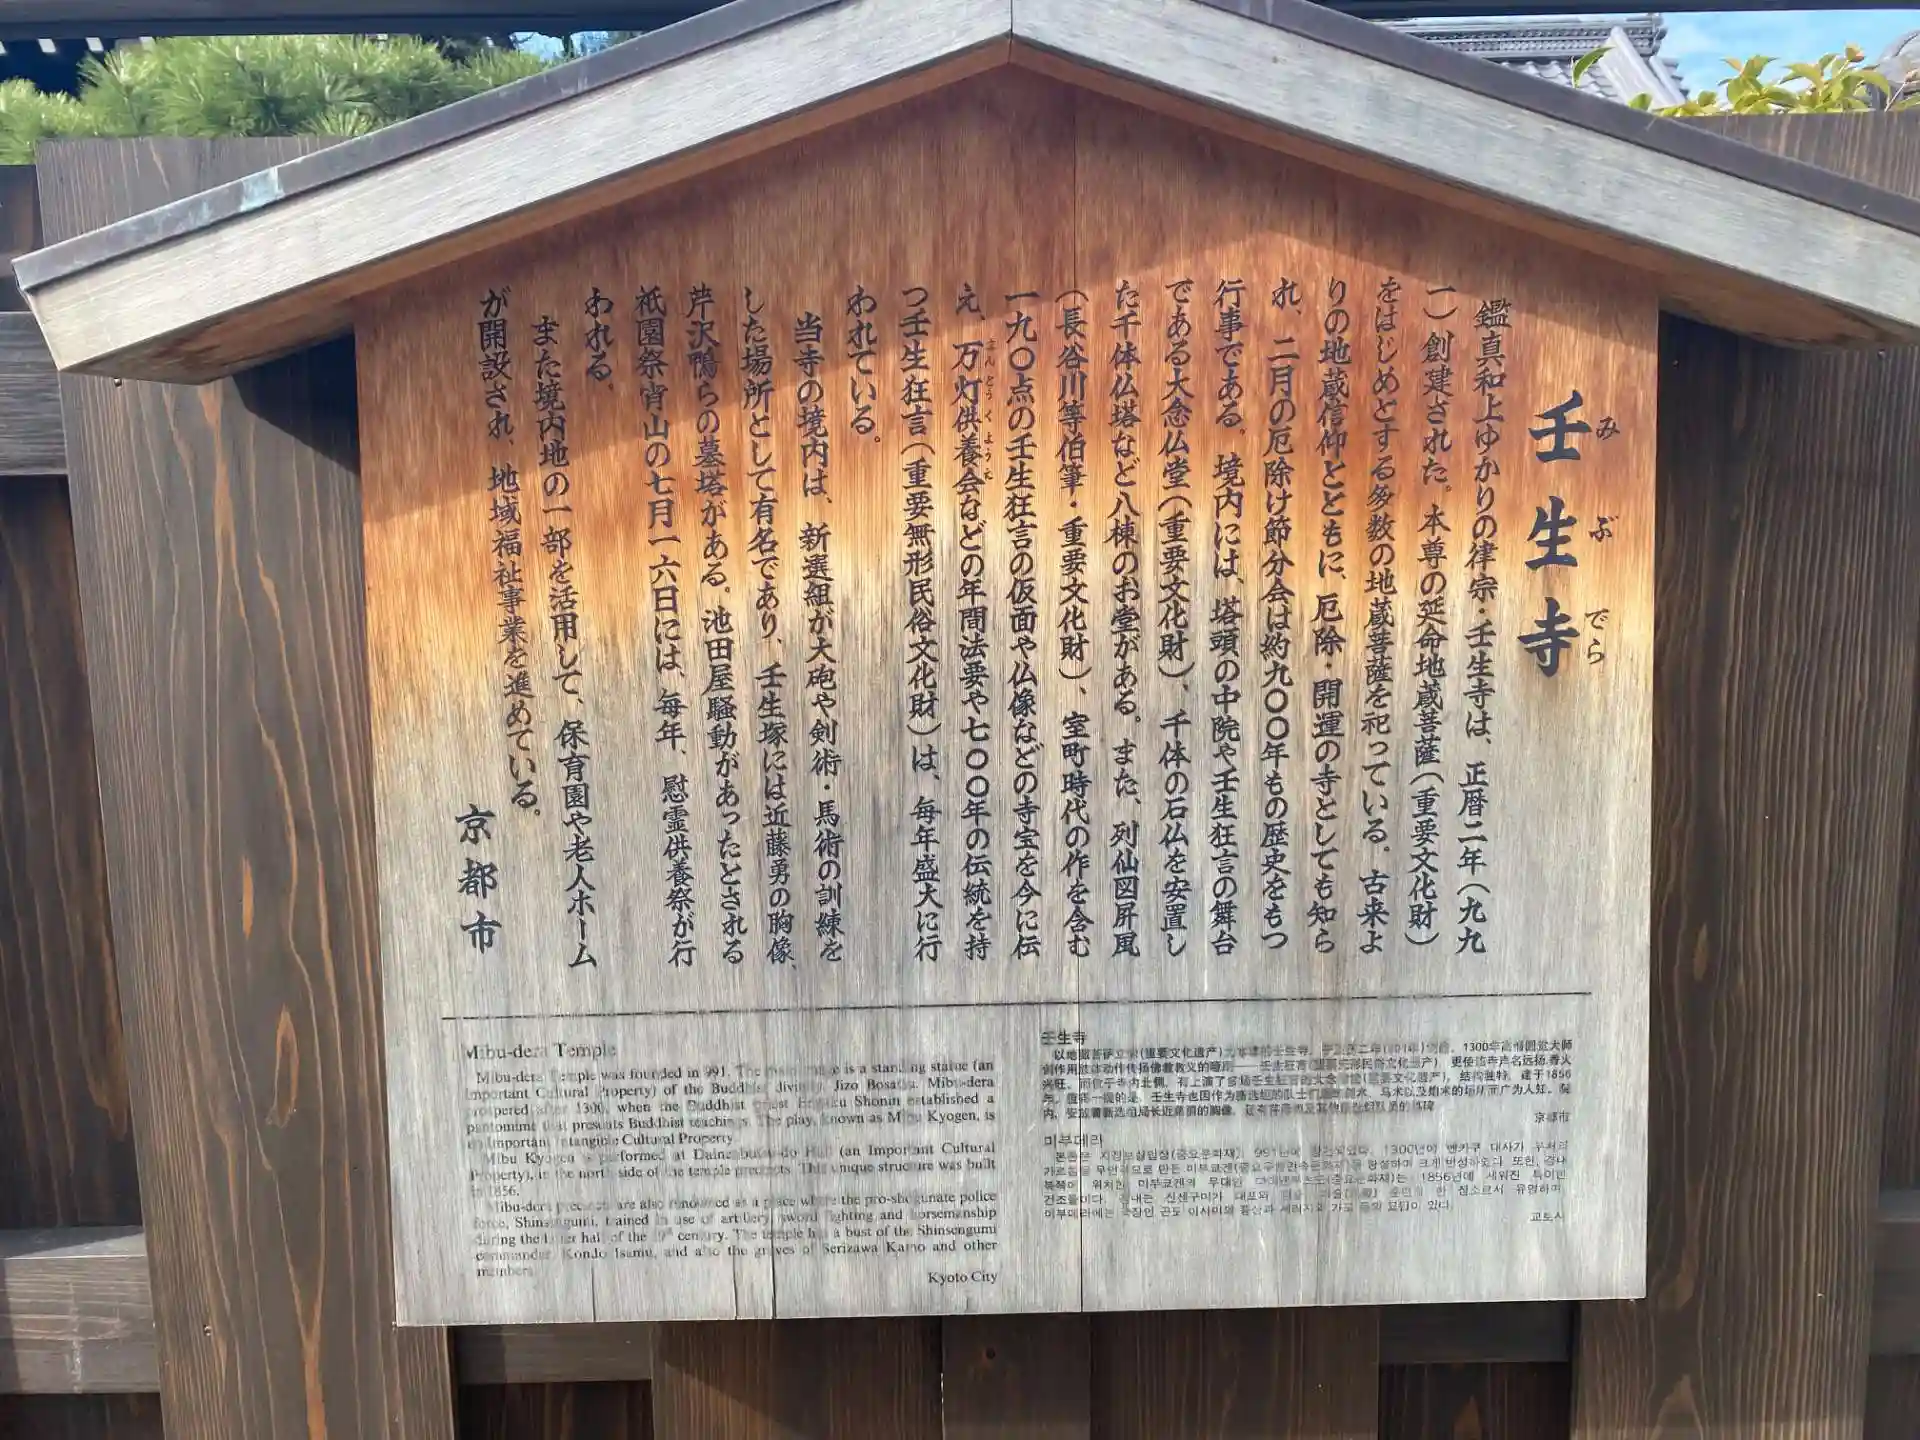 壬生寺
みぶでら
鑑真和上ゆかりの律宗・壬生寺は、正暦二年（九九
一）創建された。本尊の延命地蔵菩薩（重要文化財）
をはじめとする多数の地蔵菩薩を祀っている。古来よ
りの地蔵信仰とともに、厄除・開運の寺としても知ら
れ、二月の厄除け節分会は約九〇〇年もの歴史をもつ
行事である。境内には、塔頭の中院や壬生狂言の舞台
である大念仏堂（重要文化財）、千体の石仏を安置し
た千体仏塔など八棟のお堂がある。また、列仙図屏風
（長谷川等伯筆・重要文化財）、室町時代の作を含む
一九〇点の壬生狂言の仮面や仏像などの寺宝を今に伝
え、万灯供養会などの年間法要や七〇〇年の伝統を持
まんとうくようえ
つ壬生狂言（重要無形民俗文化財）は、毎年盛大に行
われている。
当寺の境内は、新選組が大砲や剣術・馬術の訓練を
した場所として有名であり、壬生塚には近藤勇の胸像、
芹沢鴨らの墓塔がある。池田屋騒動があったとされる
祇園祭宵山の七月一六日には、毎年、慰霊供養祭が行
われる。
また境内地の一部を活用して、保育園や老人ホーム
が開設され、地域福祉事業を進めている。
京都市
Mibu-dera Temple
Mibu-dera Temple was founded in 991. The is a standing statue (an
Important Cultural Property) of the Buddhist divinity, Jizo Bosatsu. Mibu-dera
prospered after 1300, when the Buddhist priest Shonin established a
pantomime that presents Buddhist teachings. The play, known as Mibu Kyogen, is
an Important Intangible Cultural Property.
Mibu Kyogen is performed at Dainenbutsu-do Hall (an Important Cultural
Property), in the north side of the temple precincts. This unique structure was built
in 1856.
Mibu-dera precincts are also renowned as a place where the pro-shogunate police
force, Shinsengumi, trained in use of artillery, sword fighting and horsemanship
during the latter half of the 19th century. The temple has a bust of the Shinsengumi
commander, Kondo Isamu, and also the graves of Serizawa Kamo and other
members.
Kyoto City
壬生寺
以地藏菩萨立像(重要文化遗产) 1300年高僧圆觉大师
创作用肢体动作传扬佛教教义的 更使该寺声名远扬,香火
兴旺。 结构独特，建于1856
年。
京都市
미부데라
교토시